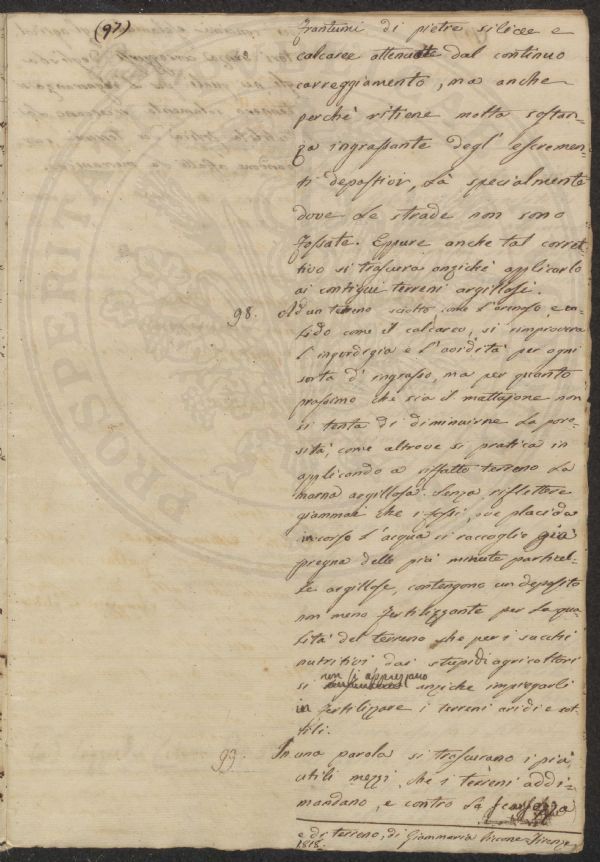 (97)
frantumi di pietre silicee e
calcaree attenuate dal continuo
carreggiamento, ma anche
perchè ritiene molta sostan-
za ingrassante degl' escremen-
ti depositivi, là specialmente
dove le strade non sono
fossate. Eppure anche tal corret-
tivo si trascura anzichè applicarlo
ai contigui terreni argillosi.
98. Ad un terreno sciolto, come l'arenoso, e ca-
lido come il calcareo, si rimprovera
l'ingordigia e l'avidità per ogni
sorta d'ingrasso, ma per quanto
prossimo che sia il mattajone non
si tenta di diminuirne la poro-
sità, come altrove si pratica in
applicando a siffatto terreno la
marna argillosa. Senza riflettere
giammai che i fossi, ove placida
in corso l'acqua si raccoglie già
pregna delle più minute particel-
le argillose, contengono un deposito
non meno fertilizzante per la qua-
lità del terreno che per i succhi
nutritivi, dai stupidi agricoltori
si non si apprezzano anzichè impiegarli
in fertilizzare i terreni aridi e sot-
tili.
99. In una parola si trascurano i più
utili mezzi che i terreni addi-
mandano, e contro la scarsezza
e di terreno, di Giammaria Piccone - Firenze
1818.